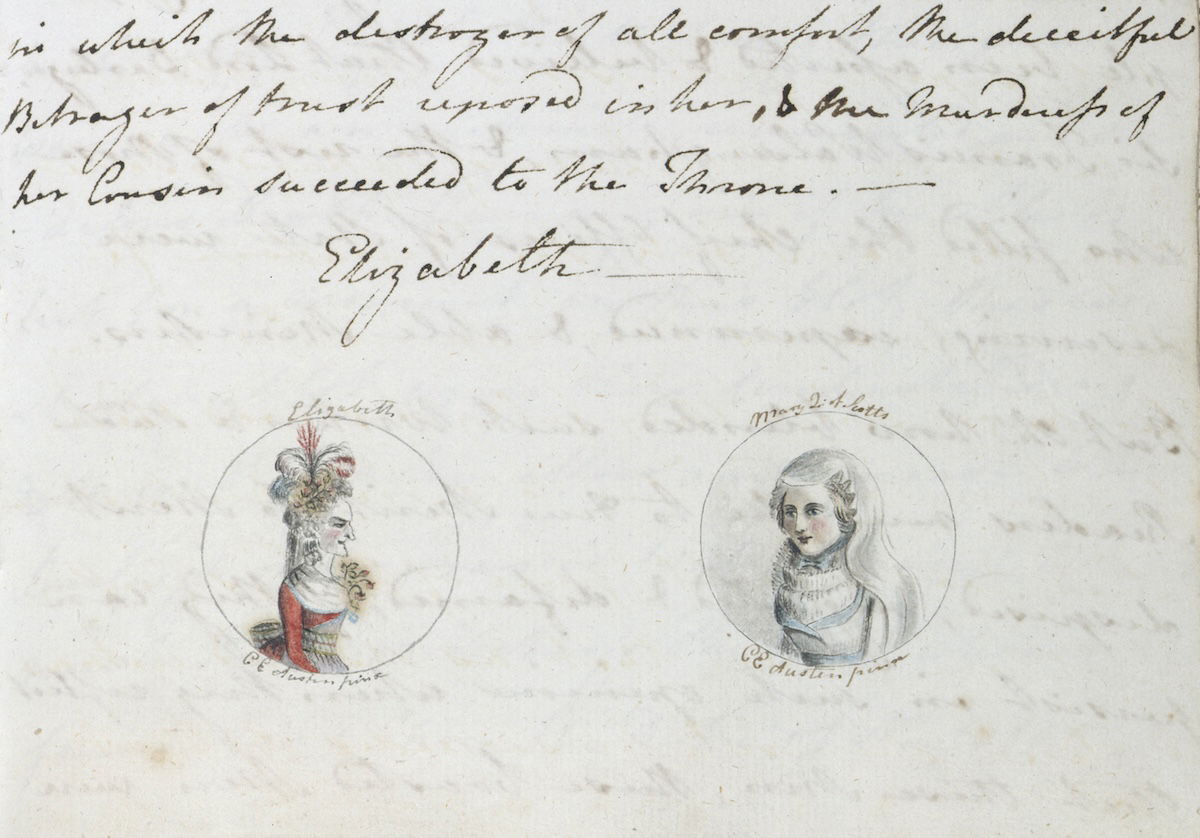 in which the destroyer of all comfort, the deceitful
Betrayer of trust reposed in her, & the Murderess of
her Cousin succeeded to the Throne. —
Elizabeth —
Elizabeth
Mary Q: of Scotts
C E Austen pinx
C E Austen pinx